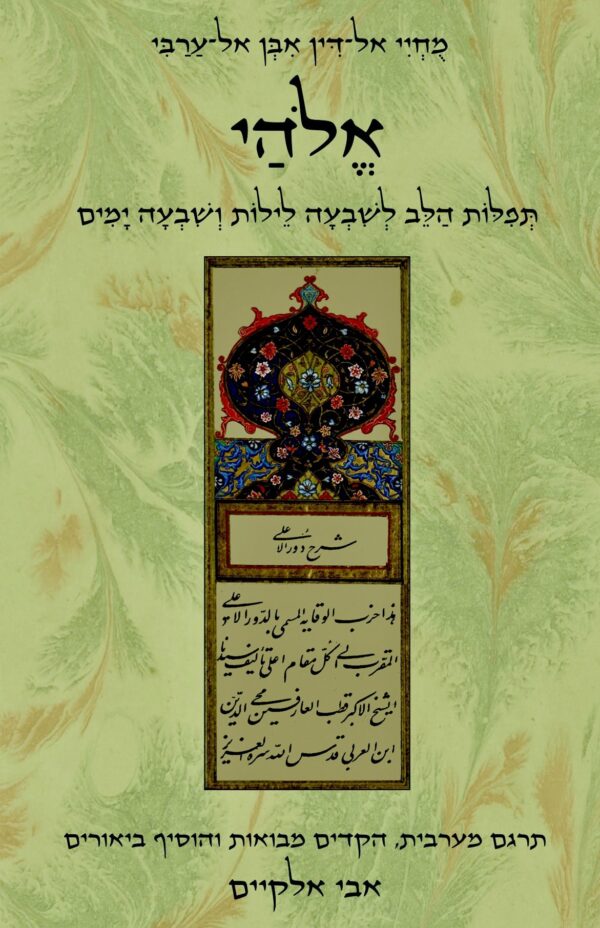 מֻחְיִי אל־דִּין אִבְּן אל־עַרַבִּי
אֱלֹהַי
תְּפִלּוֹת הַלֵּב לְשִׁבְעָה לֵילוֹת וְשִׁבְעָה יָמִים
شرح دُور الاعلى
هذا حزب الوقاية المسمى بالدّور الاعلى
المقرب الى كلّ مقام اعلى تأليف سيدنا
الشيخ الاكبر قطب العارفين محيى الدين
ابن العربي قدس الله سره العزيز
תרגם מערבית, הקדים מבואות והוסיף ביאורים
אבי אלקיים